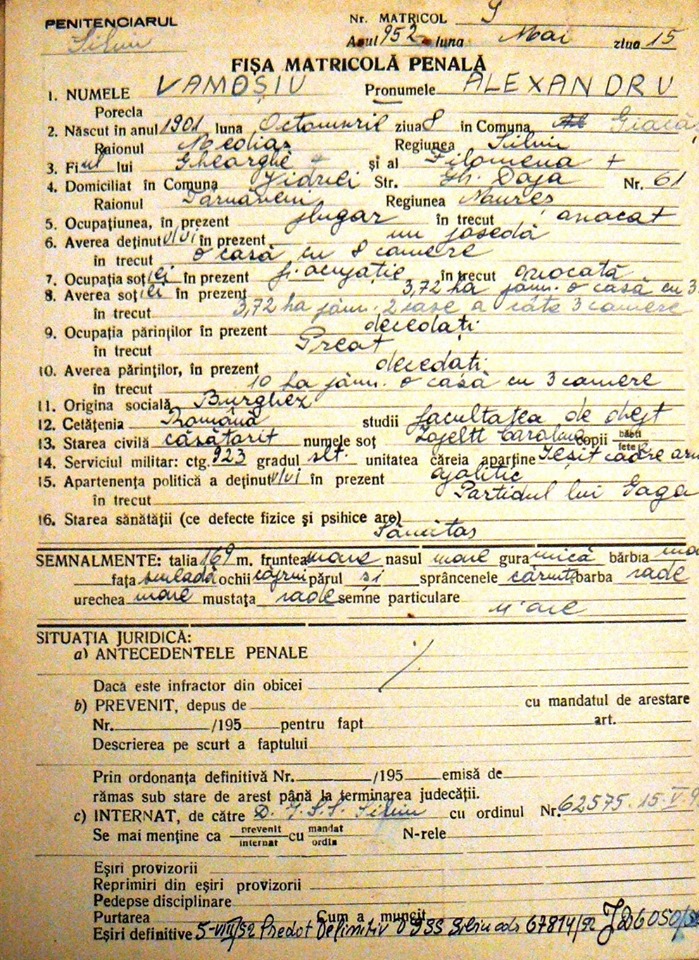 PENITENCIARUL Nr. MATRICOL
Sibiu Anul 952 luna Mai ziua 15
FIȘA MATRICOLĂ PENALĂ
1. NUMELE VAMOȘIU Pronumele ALEXANDRU
Porecla
2. Născut în anul 1901 luna Octombrie ziua 8 în Comuna
Raionul Mediaș Regiunea Sibiu
3. Fiul lui Gheorghe + și al Filomena +
4. Domiciliat în Comuna Str. Gh. Doja Nr. 61
Raionul Târnăveni Regiunea Mureș
5. Ocupațiunea, în prezent plugar în trecut avocat
6. Averea deținutului în prezent nu posedă
în trecut o casă cu 8 camere
7. Ocupația soției în prezent f. ocupație în trecut
8. Averea soției în prezent 3,72 ha păm. o casă cu 3
în trecut 3,72 ha păm. 2 case a câte 3 camere
9. Ocupația părinților în prezent decedați
în trecut Preot
10. Averea părinților, în prezent decedați
în trecut 10 ha păm. o casă cu 3 camere
11. Origina socială Burghez
12. Cetățenia Română studii facultatea de drept
13. Starea civilă căsătorit numele soț copii băeți
fete
14. Serviciul militar: ctg. 923 gradul slt. unitatea căreia aparține Ieșit cadre
15. Apartenența politică a deținutului în prezent apolitic
în trecut Partidul lui Goga
16. Starea sănătății (ce defecte fizice și psihice are) Sănătos
SEMNALMENTE: talia 169 m. fruntea mare nasul mare gura mică bărbia
fața smladă ochii căprui părul și sprâncenele cărunte barba rade
urechea mare mustața rade semne particulare
n'are
SITUAȚIA JURIDICĂ:
a) ANTECEDENTELE PENALE
Dacă este infractor din obicei
b) PREVENIT, depus de cu mandatul de arestare
Nr. /195 pentru fapt art.
Descrierea pe scurt a faptului
Prin ordonanța definitivă Nr. /195 emisă de
rămas sub stare de arest până la terminarea judecății.
c) INTERNAT, de către cu ordinul Nr. 62575. 15. V. 9
Se mai menține ca prevenit cu mandat N-rele
internat ordin
Eșiri provizorii
Reprimiri din eșiri provizorii
Pedepse disciplinare
Purtarea Cum a muncit
Eșiri definitive 5-VIII/52 Predat Definitiv Sibiu 67814/52